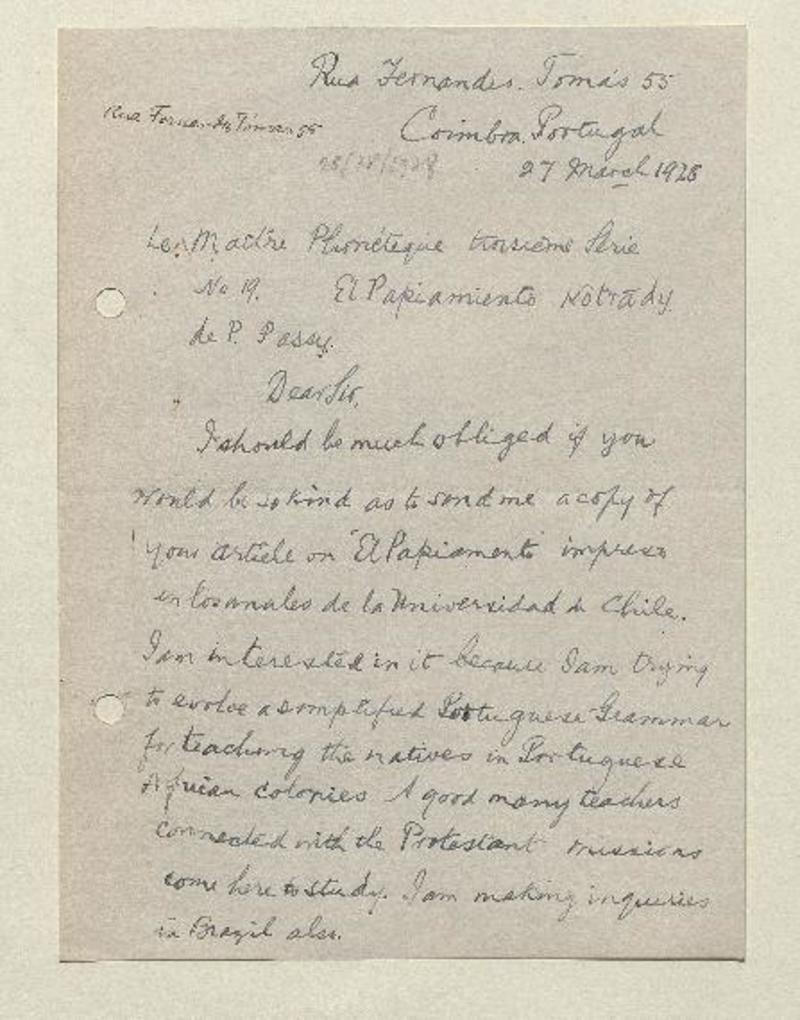 Rua Fernandes. Tomás 55
Rua Fernandes Tomas 55
Coimbra. Portugal
27 March 1928
Le Maître Phonéteque troisieme Serie
No 19. El Papiamento
de P. Passy.
Dear Sir,
I should be much obliged if you
would be so kind as to send me a copy of
your article on "El Papiamento" impreso
en los anales de la Universidad de Chile.
I am interested in it because I am trying
to evolve a simplified Portuguese Grammar
for teaching the natives in Portuguese
African colonies A good many teachers
connected with the Protestant missions
come here to study. I am making inquiries
in Brazil also.